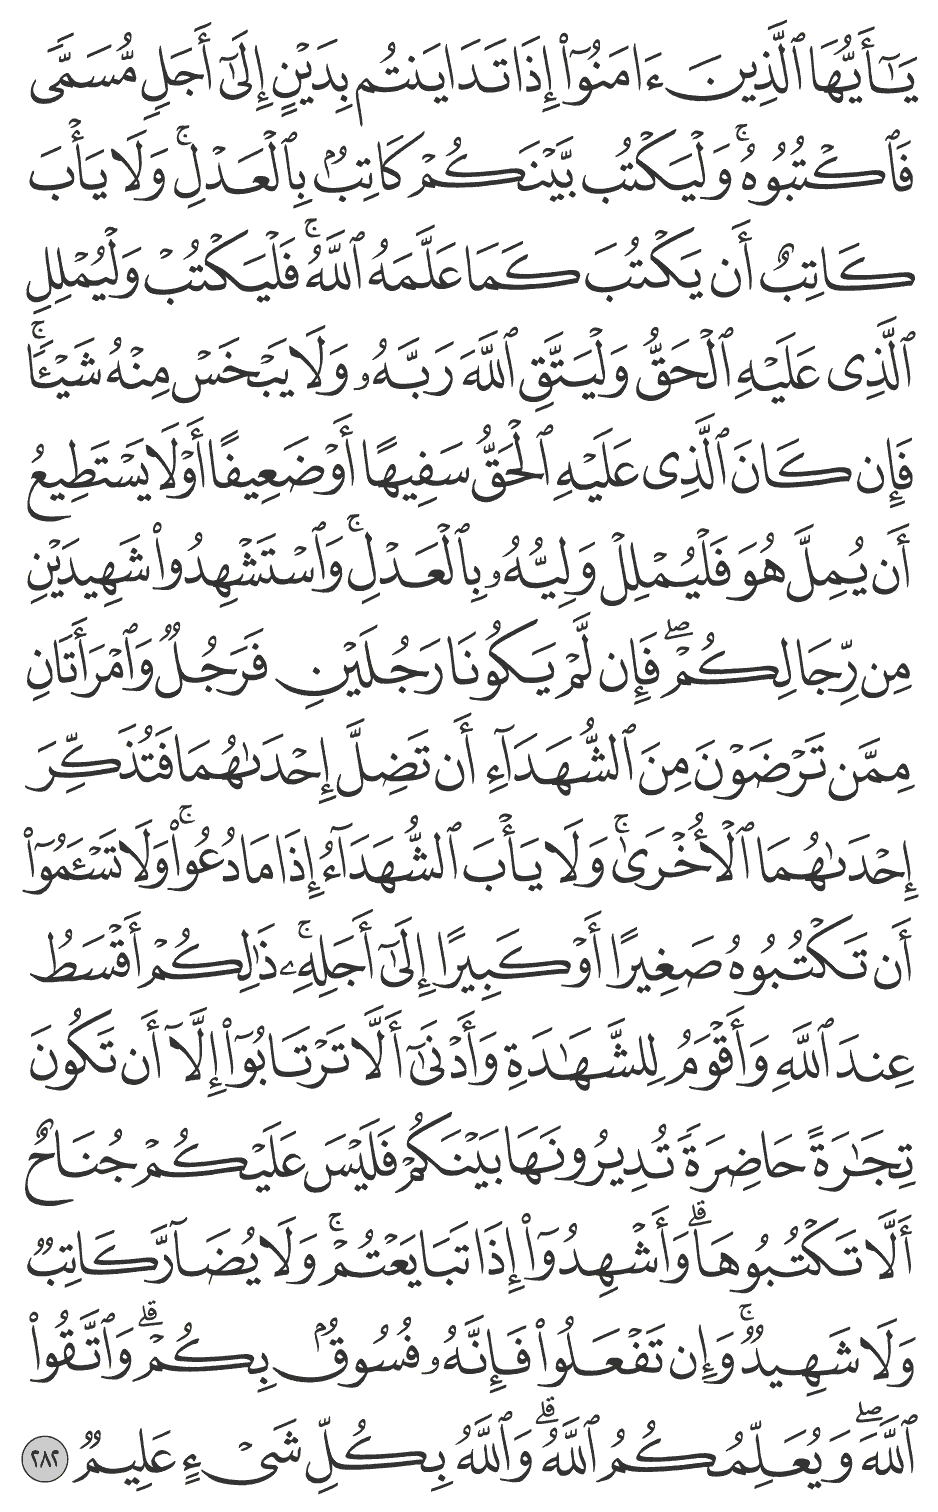 يَـٰٓأَيُّهَا ٱلَّذِينَ ءَامَنُوٓا۟ إِذَا تَدَايَنتُم بِدَيْنٍ إِلَىٰٓ أَجَلٍ مُّسَمًّى
فَٱكْتُبُوهُ ۚ وَلْيَكْتُب بَّيْنَكُمْ كَاتِبٌۢ بِٱلْعَدْلِ ۚ وَلَا يَأْبَ
كَاتِبٌ أَن يَكْتُبَ كَمَا عَلَّمَهُ ٱللَّهُ ۚ فَلْيَكْتُبْ وَلْيُمْلِلِ
ٱلَّذِى عَلَيْهِ ٱلْحَقُّ وَلْيَتَّقِ ٱللَّهَ رَبَّهُۥ وَلَا يَبْخَسْ مِنْهُ شَيْـًٔا ۚ
فَإِن كَانَ ٱلَّذِى عَلَيْهِ ٱلْحَقُّ سَفِيهًا أَوْ ضَعِيفًا أَوْ لَا يَسْتَطِيعُ
أَن يُمِلَّ هُوَ فَلْيُمْلِلْ وَلِيُّهُۥ بِٱلْعَدْلِ ۚ وَٱسْتَشْهِدُوا۟ شَهِيدَيْنِ
مِن رِّجَالِكُمْ ۖ فَإِن لَّمْ يَكُونَا رَجُلَيْنِ فَرَجُلٌ وَٱمْرَأَتَانِ
مِمَّن تَرْضَوْنَ مِنَ ٱلشُّهَدَآءِ أَن تَضِلَّ إِحْدَىٰهُمَا فَتُذَكِّرَ
إِحْدَىٰهُمَا ٱلْأُخْرَىٰ ۚ وَلَا يَأْبَ ٱلشُّهَدَآءُ إِذَا مَا دُعُوا۟ ۚ وَلَا تَسْـَٔمُوٓا۟
أَن تَكْتُبُوهُ صَغِيرًا أَوْ كَبِيرًا إِلَىٰٓ أَجَلِهِۦ ۚ ذَٰلِكُمْ أَقْسَطُ
عِندَ ٱللَّهِ وَأَقْوَمُ لِلشَّهَـٰدَةِ وَأَدْنَىٰٓ أَلَّا تَرْتَابُوٓا۟ إِلَّآ أَن تَكُونَ
تِجَـٰرَةً حَاضِرَةً تُدِيرُونَهَا بَيْنَكُمْ فَلَيْسَ عَلَيْكُمْ جُنَاحٌ
أَلَّا تَكْتُبُوهَا ۗ وَأَشْهِدُوٓا۟ إِذَا تَبَايَعْتُمْ ۚ وَلَا يُضَآرَّ كَاتِبٌ
وَلَا شَهِيدٌ ۚ وَإِن تَفْعَلُوا۟ فَإِنَّهُۥ فُسُوقٌۢ بِكُمْ ۗ وَٱتَّقُوا۟
ٱللَّهَ ۖ وَيُعَلِّمُكُمُ ٱللَّهُ ۗ وَٱللَّهُ بِكُلِّ شَىْءٍ عَلِيمٌ ٢٨٢